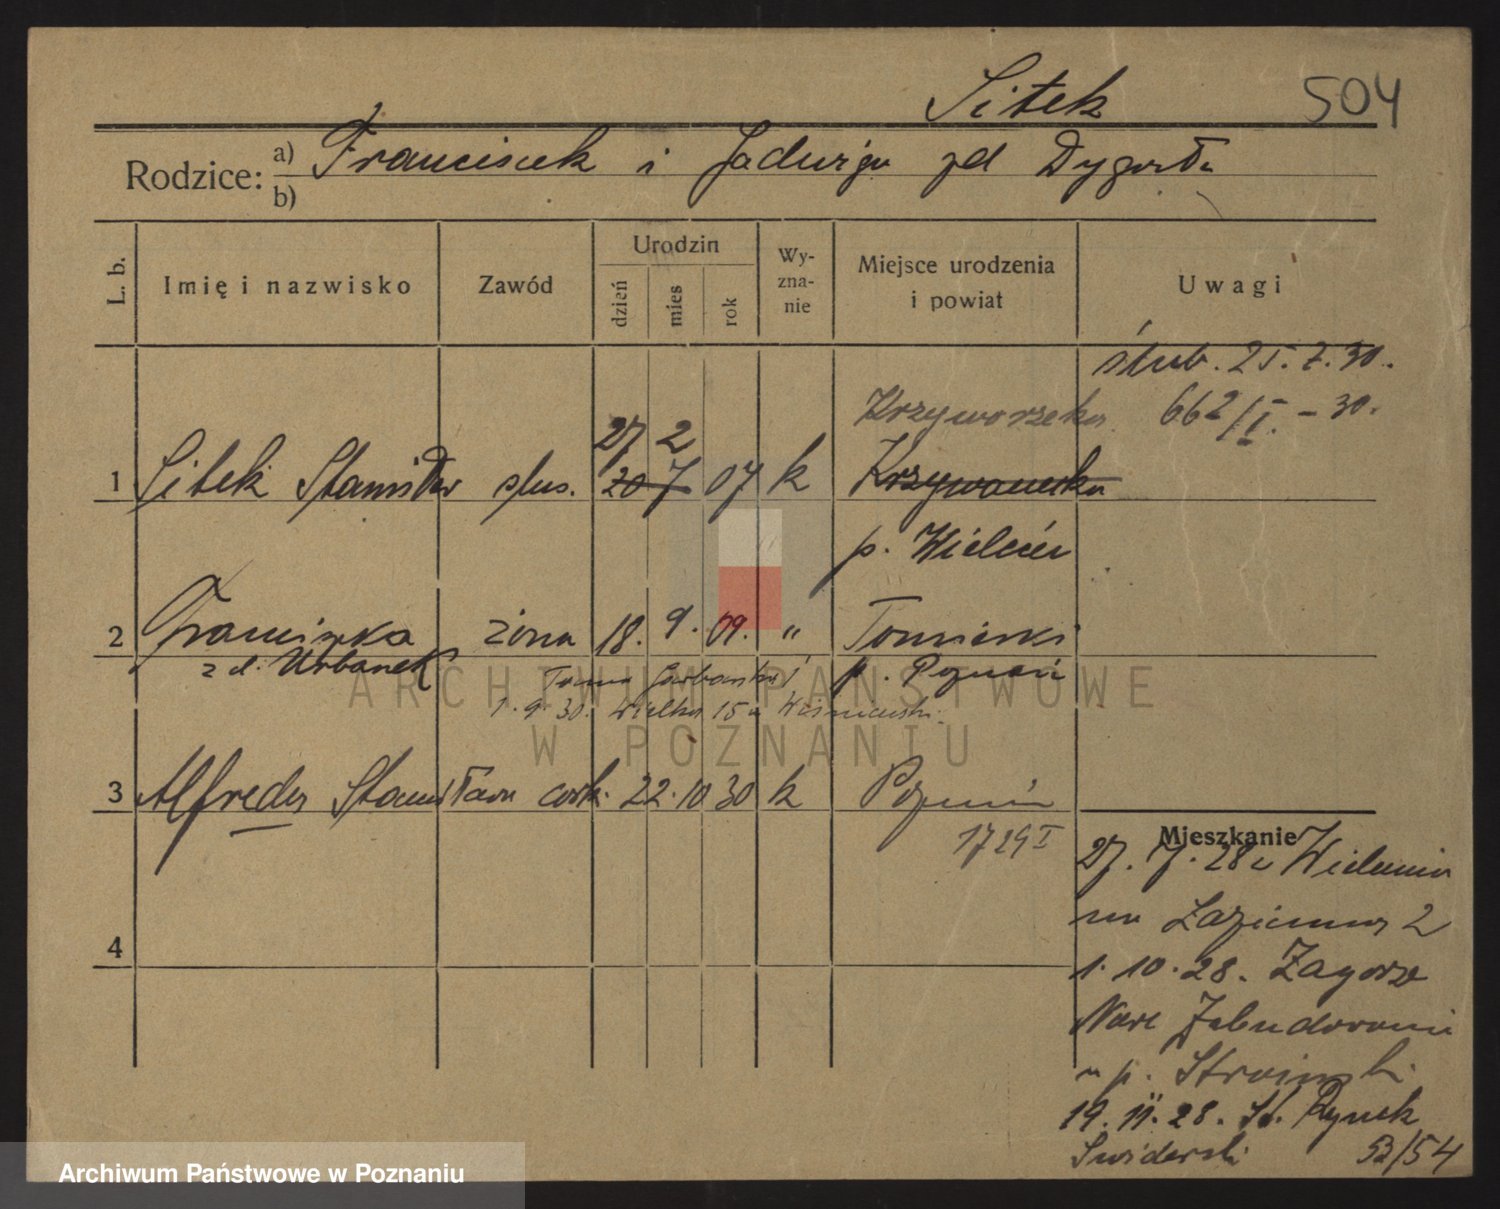 Sitek 504
Rodzice: a) Franciszek i Jadwiga zd Dygasta
b)
L. b. Imię i nazwisko Zawód Urodzin dzień mies rok Wy-zna-nie Miejsce urodzenia i powiat Uwagi
ślub. 25.7.30.
Krzyworzeka 662/I. - 30.
27 2
1 Sitek Stanisław słus. 20 7 07 k Krzyworzeka
p. Wieluń
2 Franciszka żona 18. 9. 09. " Tomiski
z d. Urbanek p. Poznań
1.9.30. Wielka 15 u Wiśniewski
3 Alfreda Stanisława córk. 22.10 30 k Poznań
1729 I
Mieszkanie
27. 7. 28 z Wielunia
na Łazienna 2
4
1.10.28. Zagórze
Nowe Zabudowania
u p. Stroinski
19.11.28. St. Rynek
Swiderski 53/54
ARCHIWUM PAŃSTWOWE
W POZNANIU
Archiwum Państwowe w Poznaniu